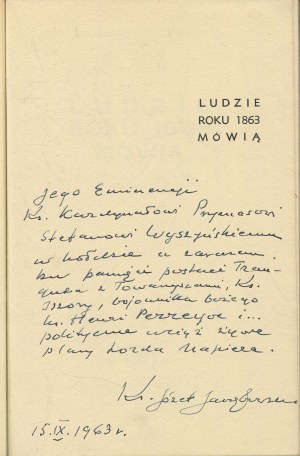 LUDZIE
ROKU 1863
MÓWIĄ
Jego Eminencji
Ks. Kardynałowi Prymasowi
Stefanowi Wyszyńskiemu
w hołdzie a zarazem
ku pamięci postaci Trau-
gutta z Towarzyszami, Ks.
bojownika bożego
ks. Henri Perreyve i...
politycznie wciąż żywe
plany Lorda Napiera.
Ks. Józef
15.IX.1963 r.